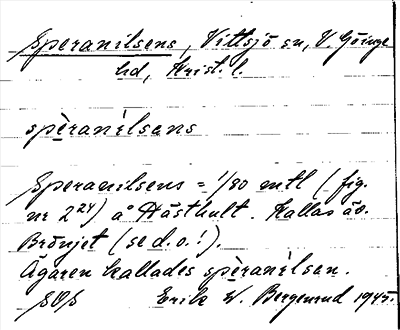 Speranilsens, Vittsjö sn, V. Göinge
hd, Krist. l.
spèranílsens
Speranilsens = 1/80 mtl (fig.
nr 2²⁴) å Hästhult. Kallas äv.
Brönjet (se d. o.!).
Ägaren kallades spèranílsan.
Erik W. Bergenrud 1945.